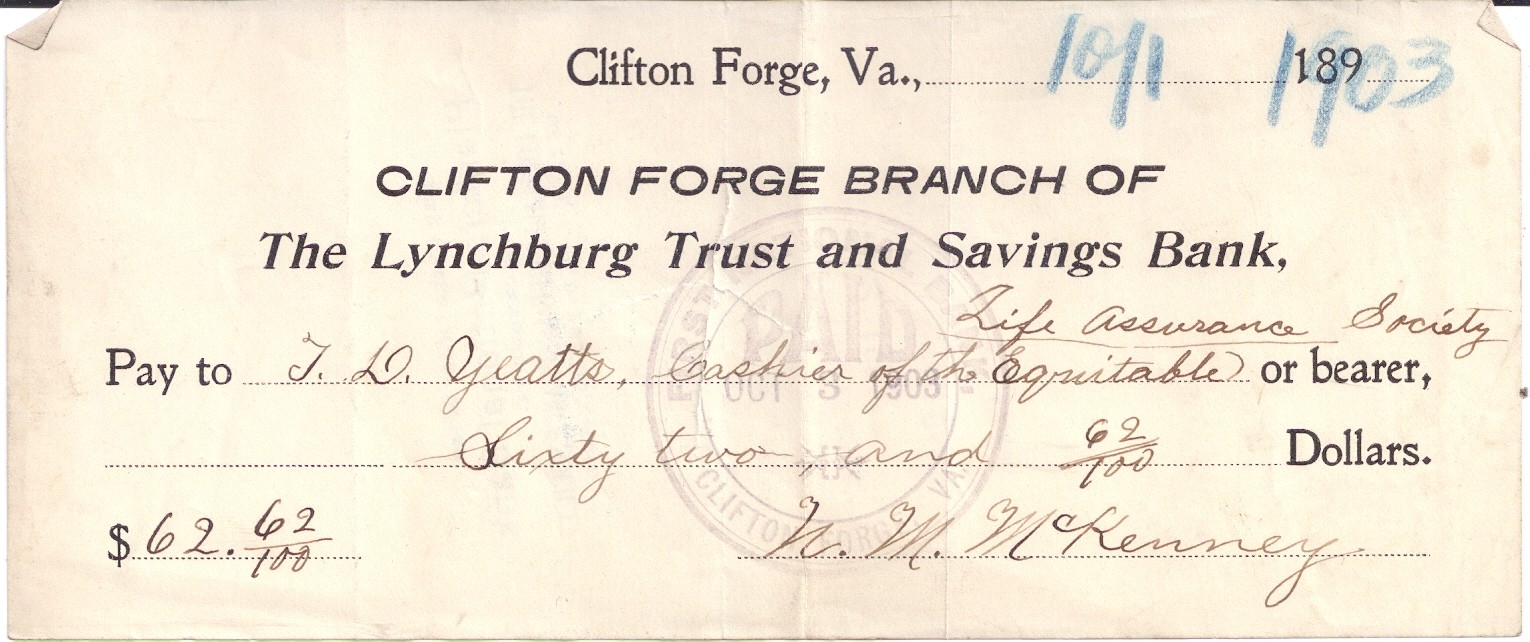 Clifton Forge, Va., 10/1 1903 189
CLIFTON FORGE BRANCH OF
The Lynchburg Trust and Savings Bank,
Life Assurance Society
Pay to T. D. Yeatts, Cashier of the Equitable or bearer,
Sixty two, and 62/100 Dollars.
$ 62. 62/100
W. M. McKenney
FIRST NATIONAL BANK
PAID
OCT 3 1903
CLIFTON FORGE VA.